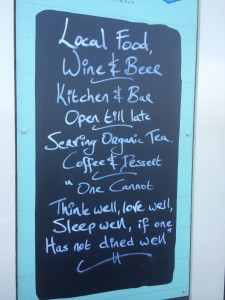 Local Food,
Wine & Beer
Kitchen & Bar
Open till late
Serving Organic Tea.
Coffee & Dessert
"One Cannot
Think well, love well,
Sleep well, if one
Has not dined well"